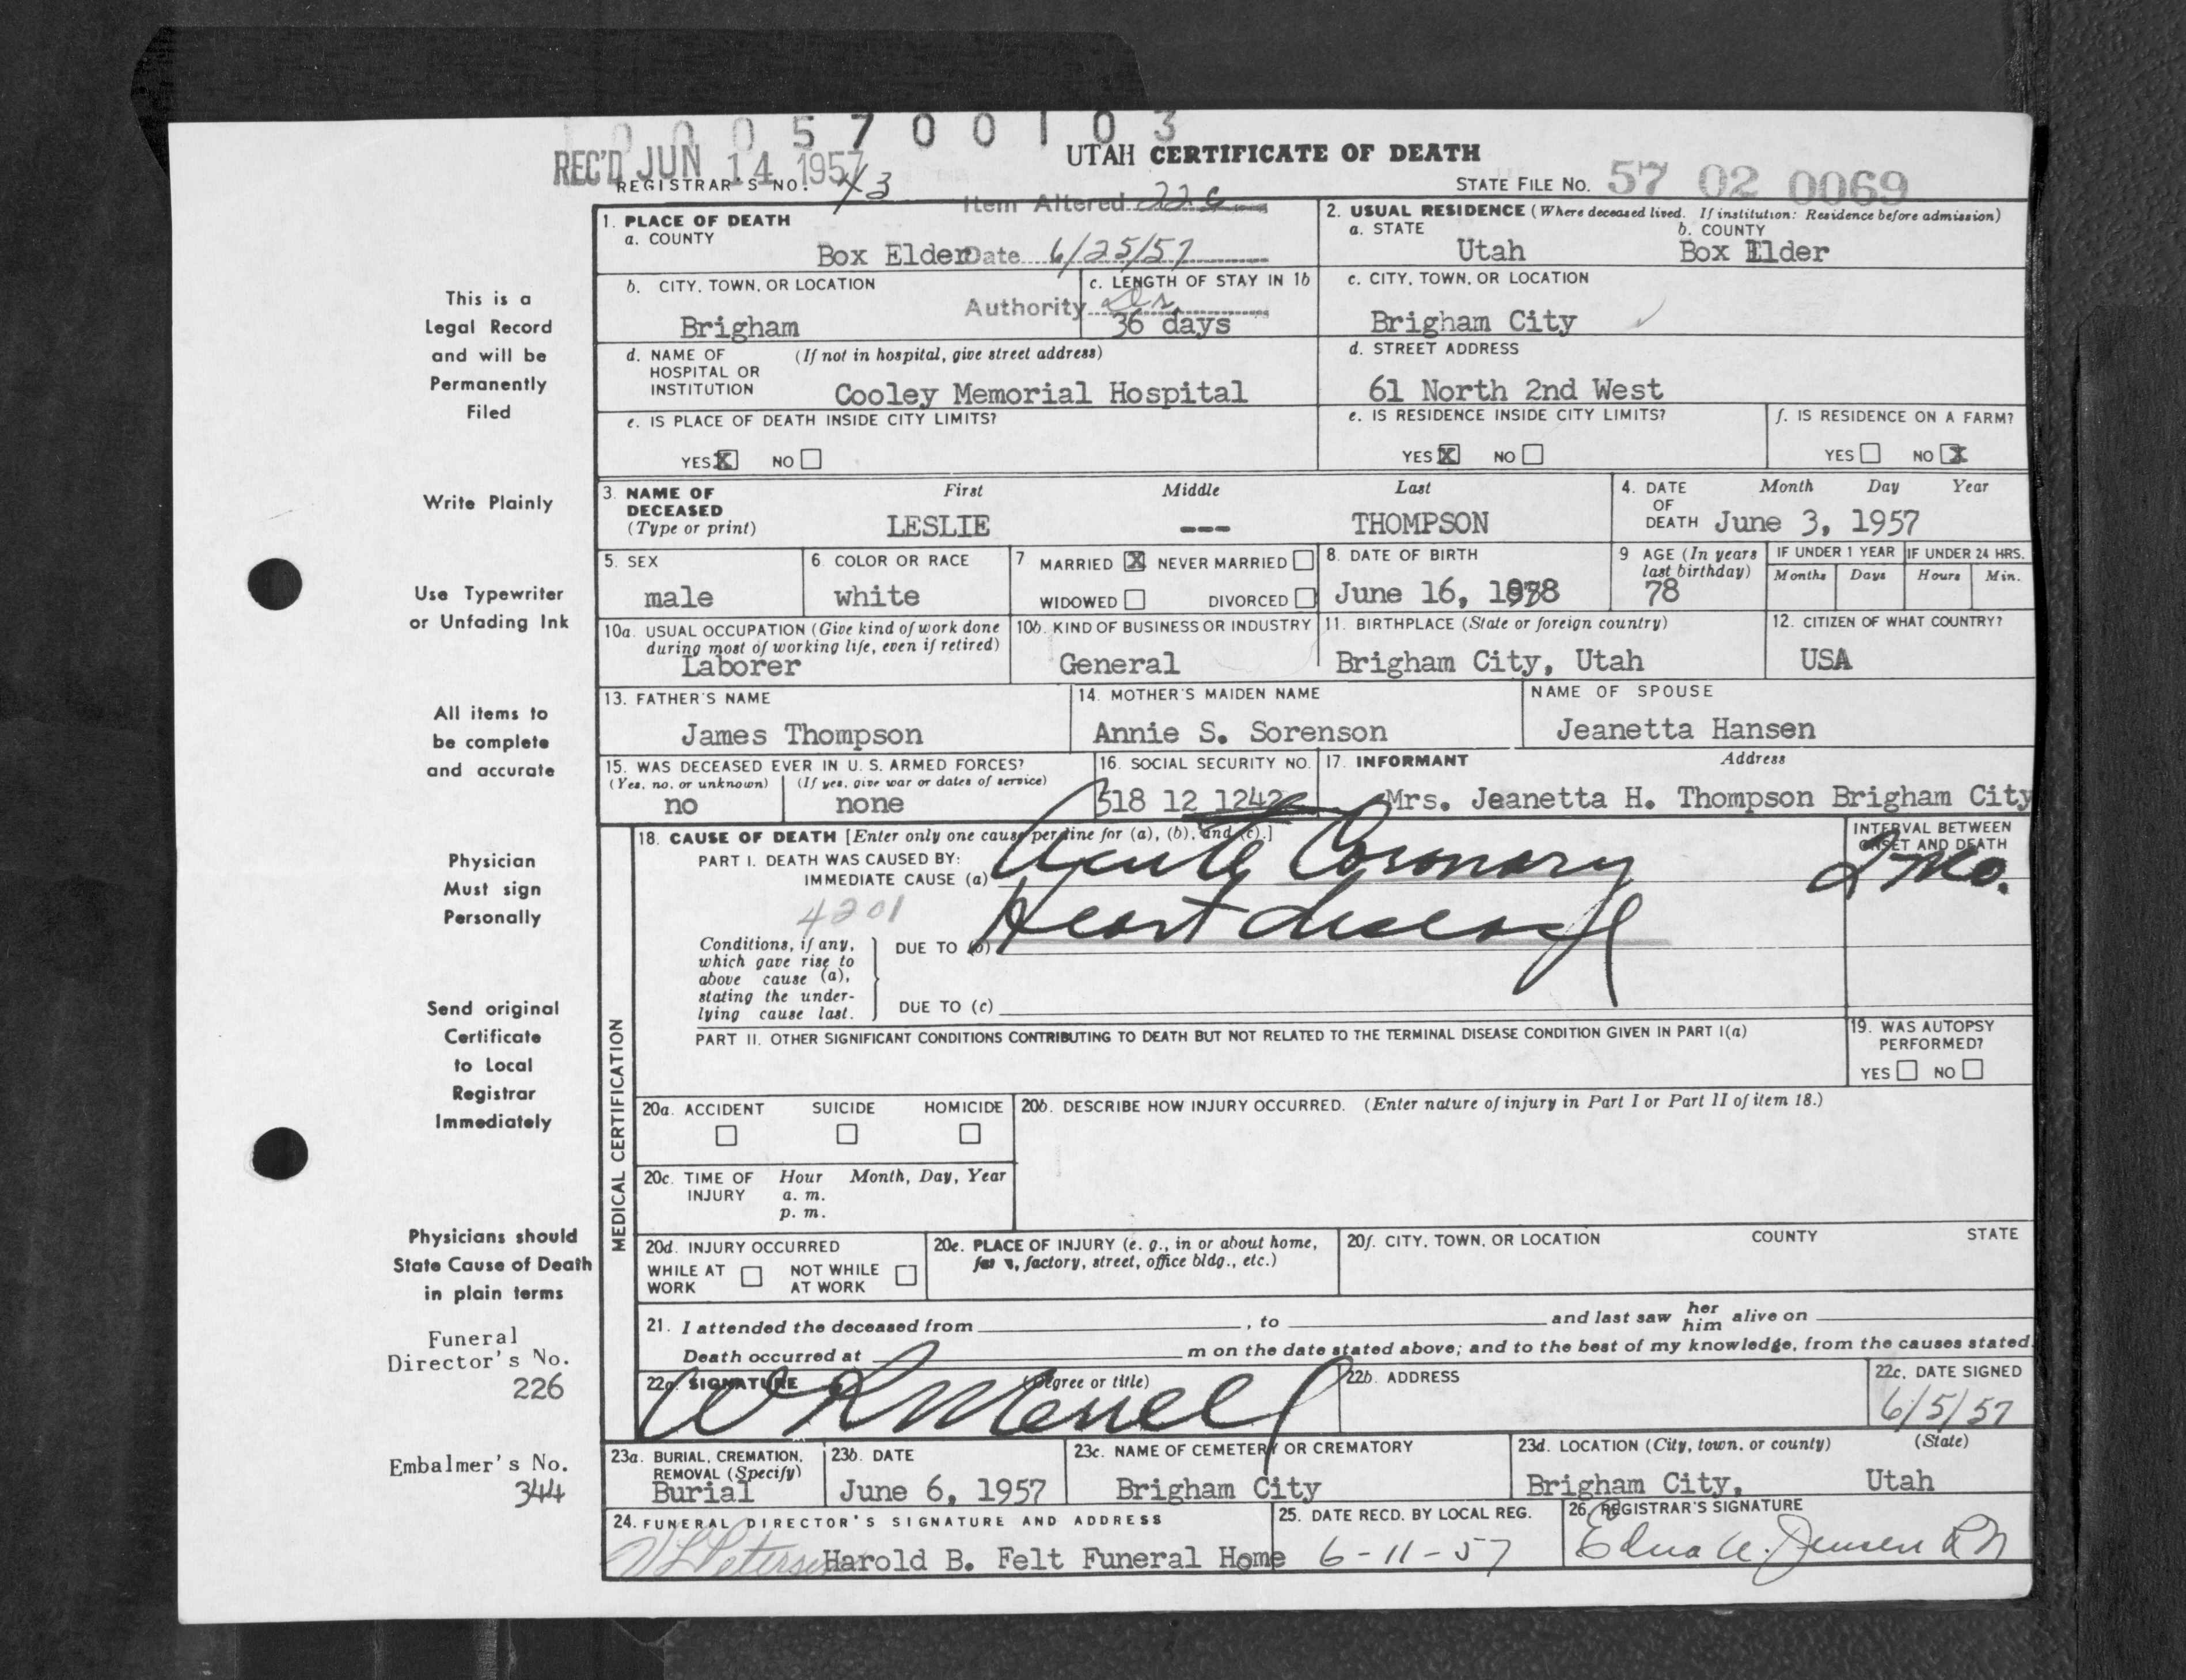 0 0 0 5 7 0 0 1 0 3
REC'D JUN 14 1957
UTAH CERTIFICATE OF DEATH
REGISTRAR'S NO. STATE FILE NO. 57 02 0069
Item Altered 22c
1. PLACE OF DEATH
a. COUNTY
Box Elder Date 6/25/57
2. USUAL RESIDENCE (Where deceased lived. If institution: Residence before admission)
a. STATE b. COUNTY
Utah Box Elder
b. CITY, TOWN, OR LOCATION c. LENGTH OF STAY IN 1b
Authority Dr.
Brigham 36 days
c. CITY, TOWN, OR LOCATION
Brigham City
d. NAME OF HOSPITAL OR INSTITUTION (If not in hospital, give street address)
Cooley Memorial Hospital
d. STREET ADDRESS
61 North 2nd West
e. IS PLACE OF DEATH INSIDE CITY LIMITS?
YES X NO
e. IS RESIDENCE INSIDE CITY LIMITS?
YES X NO
f. IS RESIDENCE ON A FARM?
YES NO X
3. NAME OF DECEASED (Type or print) First Middle Last
LESLIE --- THOMPSON
4. DATE OF DEATH Month Day Year
June 3, 1957
5. SEX
male
6. COLOR OR RACE
white
7 MARRIED X NEVER MARRIED
WIDOWED DIVORCED
8. DATE OF BIRTH
June 16,
9 AGE (In years last birthday)
78
IF UNDER 1 YEAR IF UNDER 24 HRS.
Months Days Hours Min.
10a. USUAL OCCUPATION (Give kind of work done during most of working life, even if retired)
Laborer
10b. KIND OF BUSINESS OR INDUSTRY
General
11. BIRTHPLACE (State or foreign country)
Brigham City, Utah
12. CITIZEN OF WHAT COUNTRY?
USA
13. FATHER'S NAME
James Thompson
14. MOTHER'S MAIDEN NAME
Annie S. Sorenson
NAME OF SPOUSE
Jeanetta Hansen
15. WAS DECEASED EVER IN U. S. ARMED FORCES?
(Yes, no, or unknown) (If yes, give war or dates of service)
no none
16. SOCIAL SECURITY NO.
518 12 1242
17. INFORMANT Address
Mrs. Jeanetta H. Thompson Brigham City
18. CAUSE OF DEATH [Enter only one cause per line for (a), (b), and (c).]
PART I. DEATH WAS CAUSED BY:
IMMEDIATE CAUSE (a) Acute Coronary
INTERVAL BETWEEN ONSET AND DEATH
2 Mo.
4201
Conditions, if any, which gave rise to above cause (a), stating the underlying cause last.
DUE TO (b) Heart disease
DUE TO (c)
PART II. OTHER SIGNIFICANT CONDITIONS CONTRIBUTING TO DEATH BUT NOT RELATED TO THE TERMINAL DISEASE CONDITION GIVEN IN PART I(a)
19. WAS AUTOPSY PERFORMED?
YES NO
MEDICAL CERTIFICATION
20a. ACCIDENT SUICIDE HOMICIDE
20b. DESCRIBE HOW INJURY OCCURRED. (Enter nature of injury in Part I or Part II of item 18.)
20c. TIME OF INJURY Hour Month, Day, Year
a. m.
p. m.
20d. INJURY OCCURRED
WHILE AT WORK NOT WHILE AT WORK
20e. PLACE OF INJURY (e. g., in or about home, factory, street, office bldg., etc.)
20f. CITY, TOWN, OR LOCATION COUNTY STATE
21. I attended the deceased from , to and last saw her him alive on
Death occurred at m on the date stated above; and to the best of my knowledge, from the causes stated.
22a. SIGNATURE (Degree or title)
W R Merrell
22b. ADDRESS
22c. DATE SIGNED
6/5/57
23a. BURIAL, CREMATION, REMOVAL (Specify)
Burial
23b. DATE
June 6, 1957
23c. NAME OF CEMETERY OR CREMATORY
Brigham City
23d. LOCATION (City, town, or county) (State)
Brigham City, Utah
24. FUNERAL DIRECTOR'S SIGNATURE AND ADDRESS
Petersen Harold B. Felt Funeral Home
25. DATE RECD. BY LOCAL REG.
6-11-57
26. REGISTRAR'S SIGNATURE
Edna A. Jensen RN
This is a
Legal Record
and will be
Permanently
Filed
Write Plainly
Use Typewriter
or Unfading Ink
All items to
be complete
and accurate
Physician
Must sign
Personally
Send original
Certificate
to Local
Registrar
Immediately
Physicians should
State Cause of Death
in plain terms
Funeral
Director's No.
226
Embalmer's No.
344